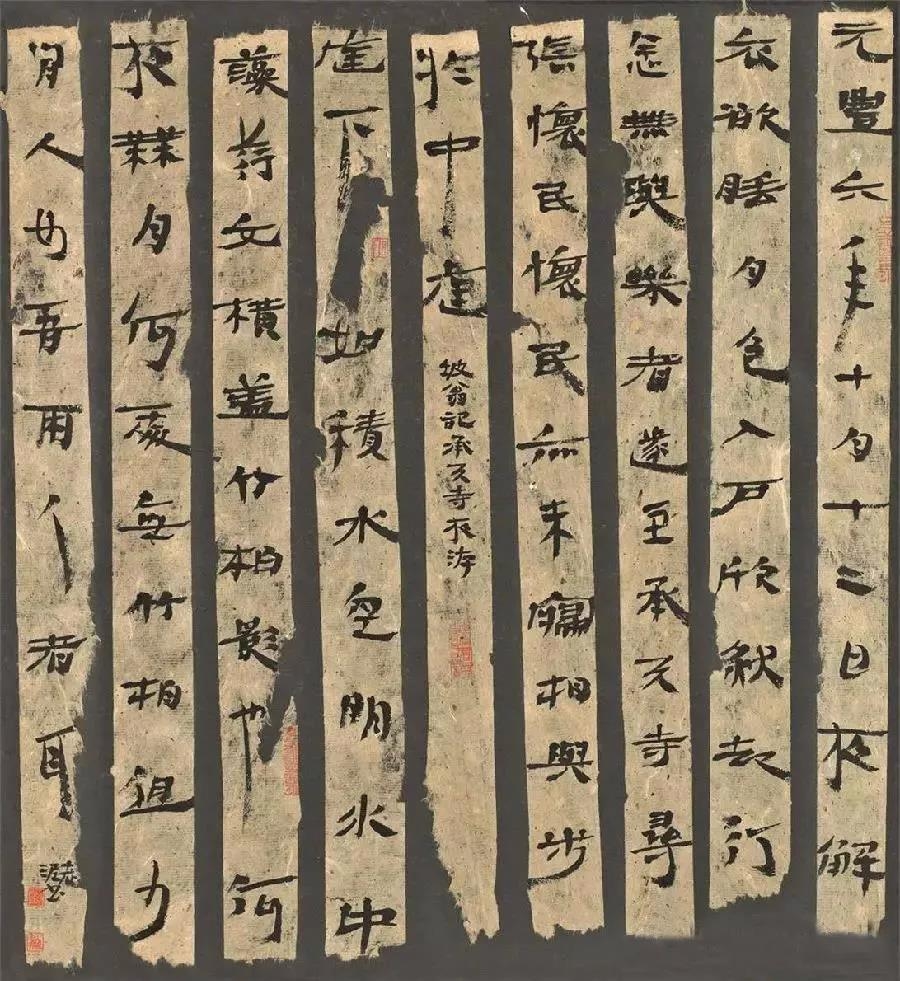 元豐六年十月十二日夜解
衣欲睡月色入戶欣然起行
念無與樂者遂至承天寺尋
張懷民懷民亦未寢相與步
於中庭
坡翁記承天寺夜游
庭下如積水空明水中
藻荇交橫蓋竹柏影也何
夜無月何處無竹柏但少
閒人如吾兩人者耳